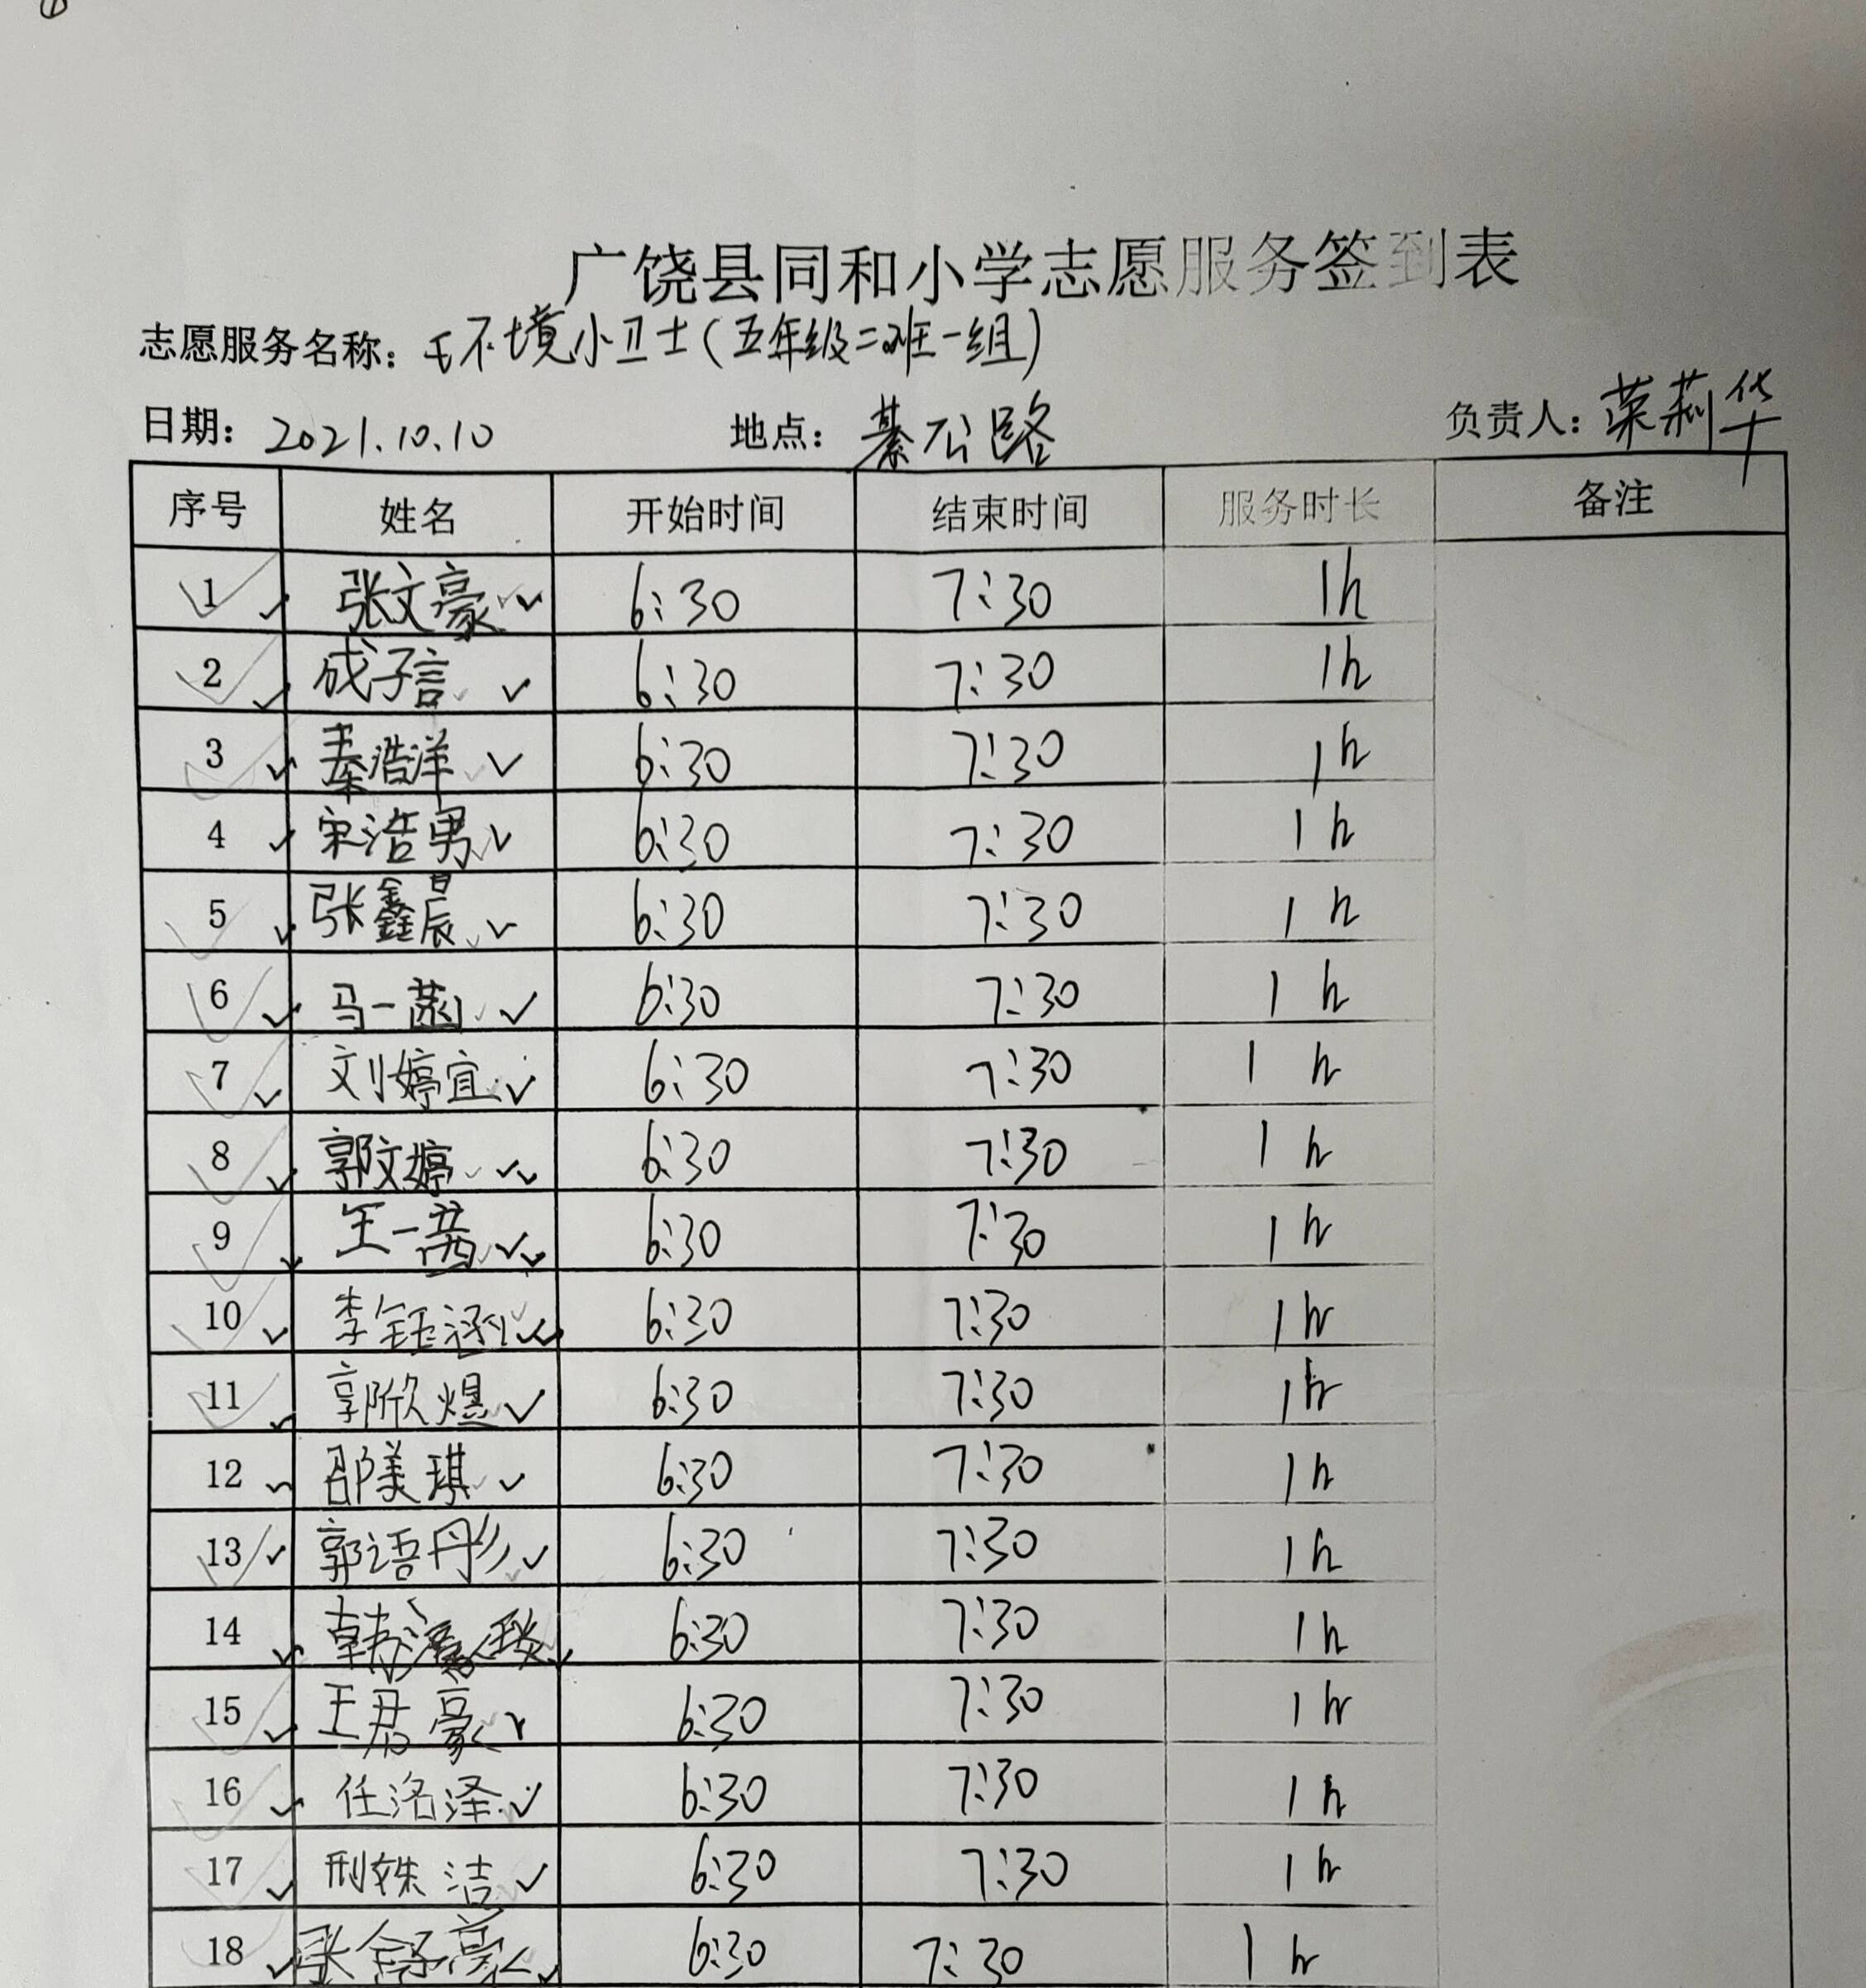 广饶县同和小学志愿服务签到表
志愿服务名称：环境小卫士（五年级二班一组）
日期：2021.10.10 地点：綦公路 负责人：荣莉华
序号 姓名 开始时间 结束时间 服务时长 备注
1 张文豪 6:30 7:30 1h
2 成子言 6:30 7:30 1h
3 秦浩洋 6:30 7:30 1h
4 宋浩男 6:30 7:30 1h
5 张鑫晨 6:30 7:30 1h
6 马一 6:30 7:30 1h
7 刘婷宜 6:30 7:30 1h
8 郭文婷 6:30 7:30 1h
9 王一茜 6:30 7:30 1h
10 李钰涵 6:30 7:30 1h
11 郭欣煜 6:30 7:30 1h
12 邵美琪 6:30 7:30 1h
13 郭语彤 6:30 7:30 1h
14 韩 6:30 7:30 1h
15 王君豪 6:30 7:30 1h
16 任洺泽 6:30 7:30 1h
17 荆姝洁 6:30 7:30 1h
18 张舒豪 6:30 7:30 1h